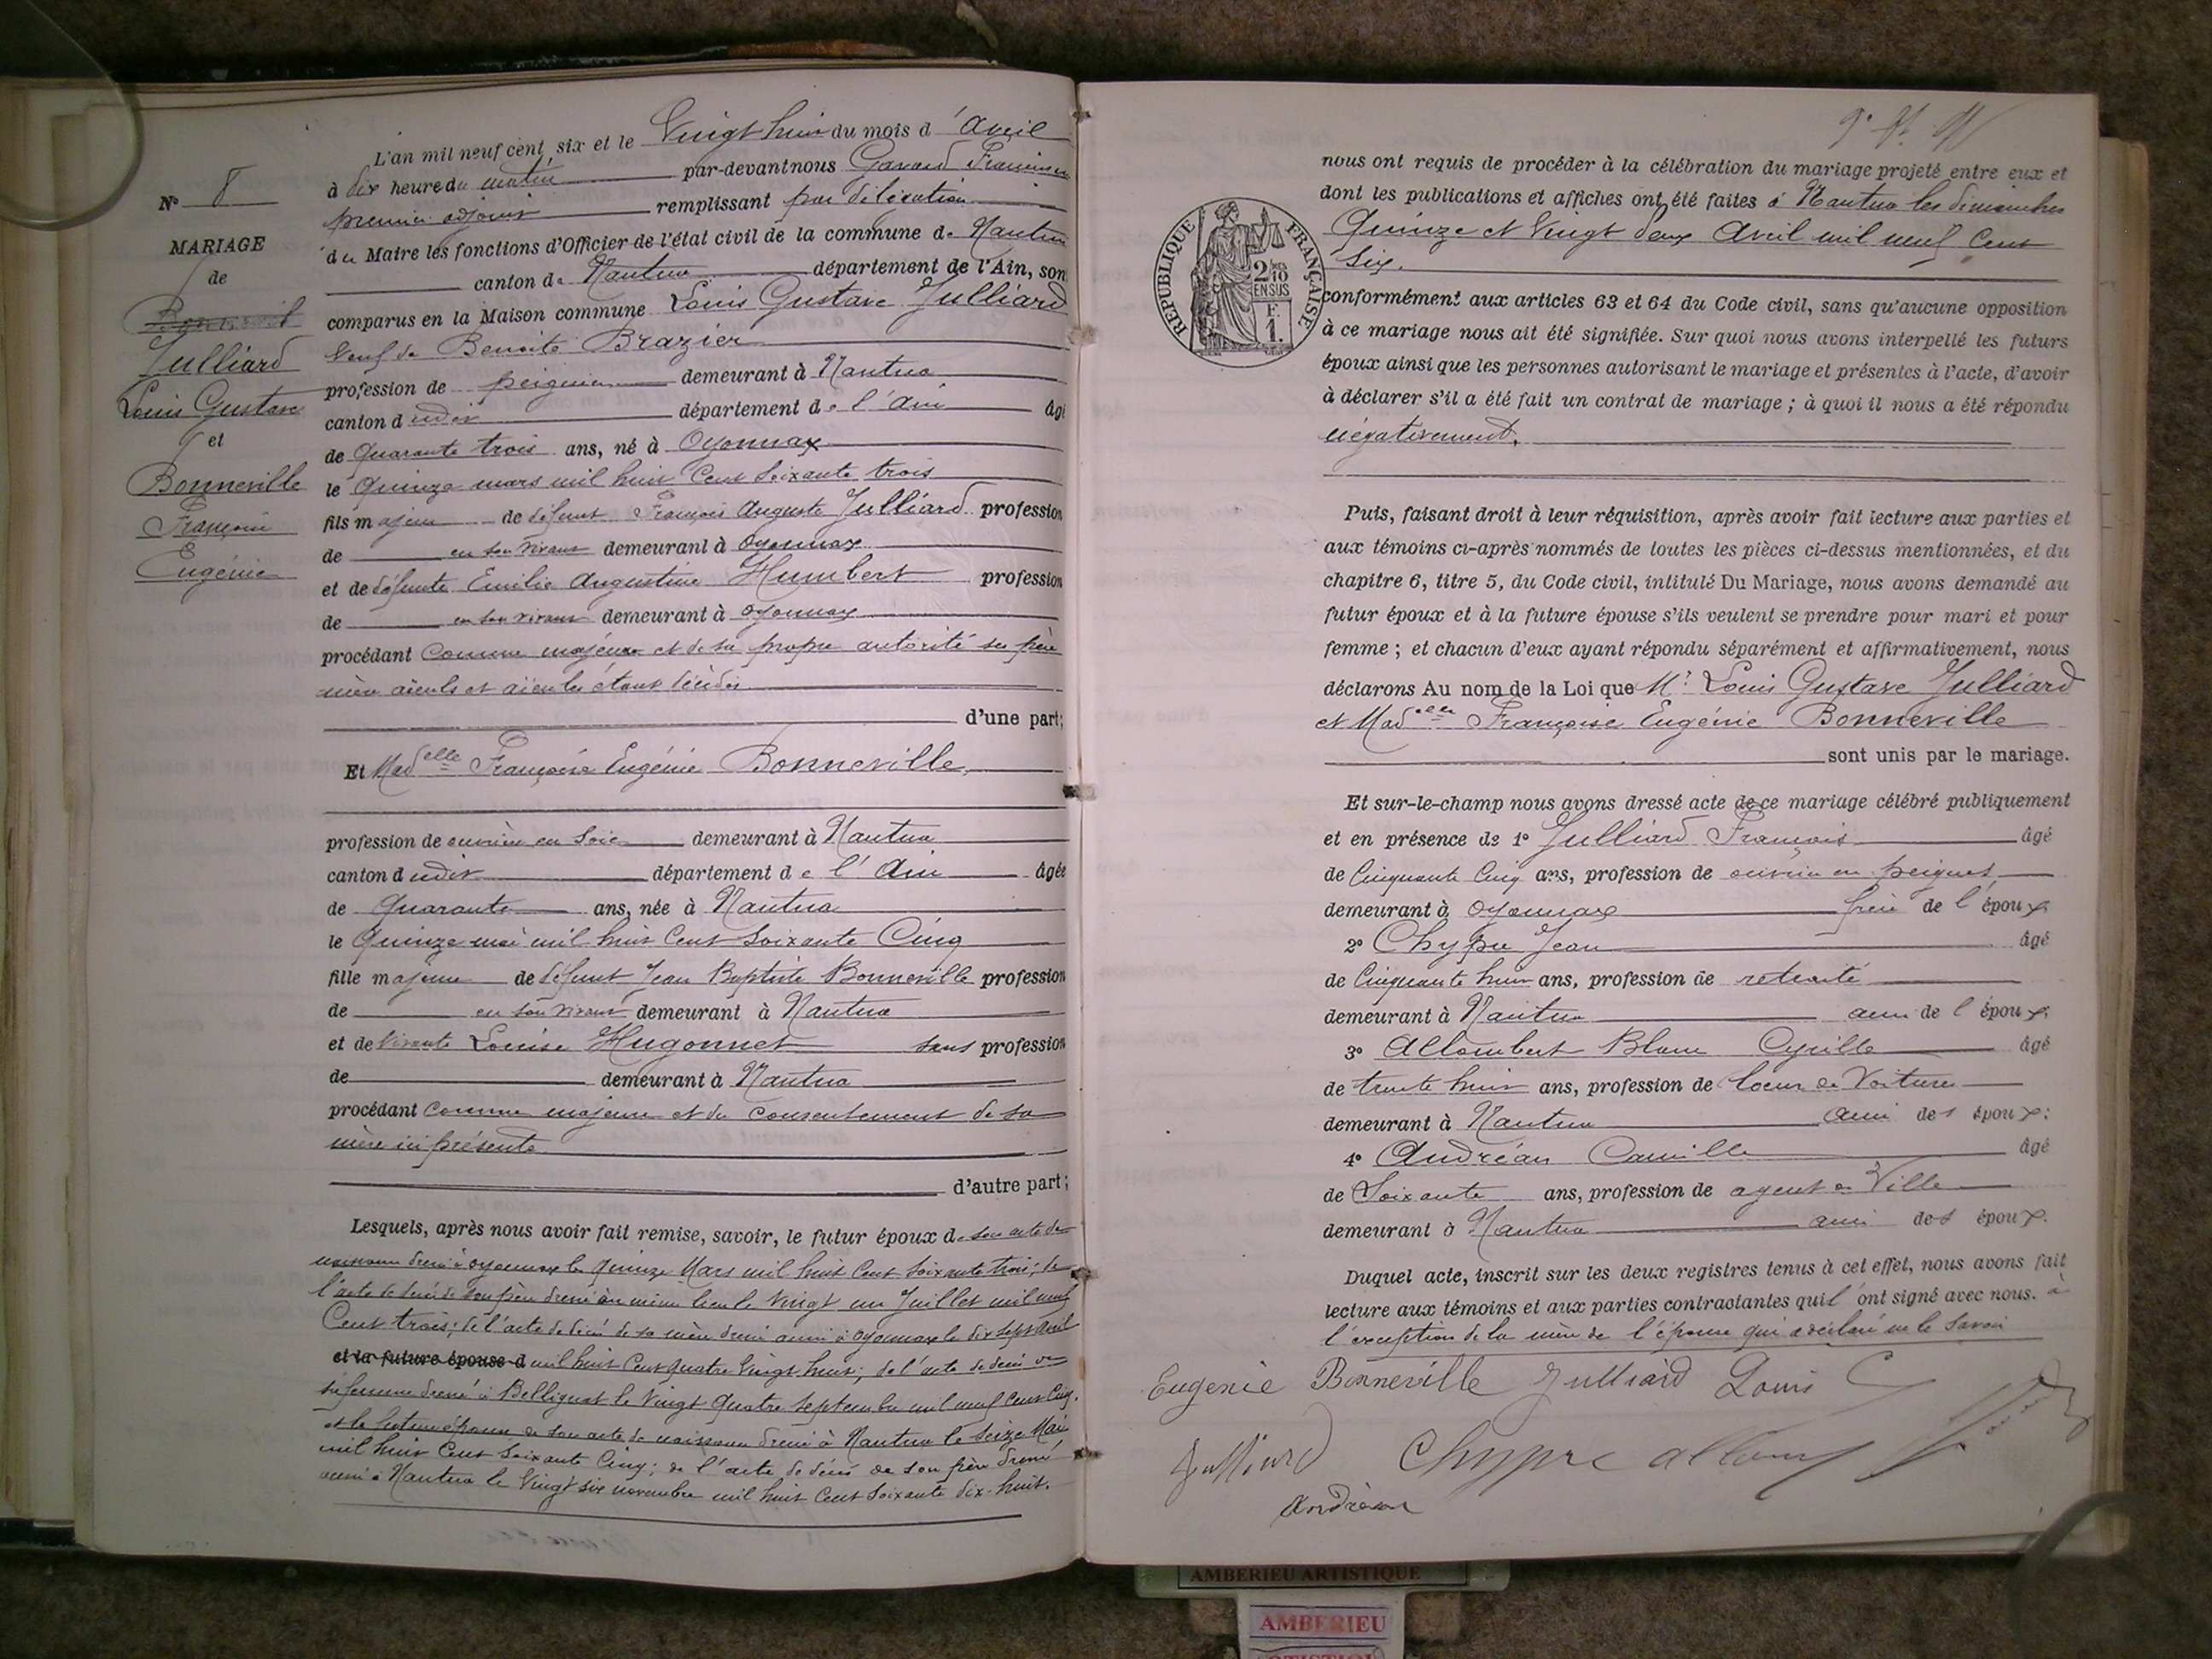 L'an mil neuf cent six et le Vingt huit du mois d'Avril
à dix heure du matin par-devant nous Gavard
premier adjoint remplissant par délégation
du Maire les fonctions d'Officier de l'état civil de la commune de Nantua
canton de Nantua département de l'Ain, son
comparus en la Maison commune Louis Gustave Julliard
Veuf de Benoite Brazier
profession de demeurant à Nantua
canton dudit département de l'Ain âgé
de Quarante trois ans, né à Oyonnax
le Quinze mars mil huit Cent Soixante trois
fils majeur de défunt François Auguste Julliard profession
de en son vivant demeurant à Oyonnax
et de défunte Emilie Augustine Humbert profession
de en son vivant demeurant à Oyonnax
procédant Comme majeur et de sa propre autorité ses père
mère aïeuls et aïeules étant décédés
d'une part;
N° 8
MARIAGE
de
Julliard
Louis Gustave
et
Bonneville
Françoise
Eugénie
Et Madelle Françoise Eugénie Bonneville
profession de ouvrière en Soie demeurant à Nantua
canton dudit département de l'Ain âgée
de Quarante ans, née à Nantua
le Quinze mai mil huit Cent Soixante Cinq
fille majeure de défunt Jean Baptiste Bonneville profession
de en son vivant demeurant à Nantua
et de vivante Louise Hugonnet sans profession
de demeurant à Nantua
procédant Comme majeure et du Consentement de sa
mère ici présente
d'autre part;
Lesquels, après nous avoir fait remise, savoir, le futur époux de son acte de
naissance dressé à Oyonnax le Quinze Mars mil huit Cent Soixante trois; de
l'acte de décès de son père dressé au même lieu le Vingt un Juillet mil neuf
Cent trois; de l'acte de décès de sa mère dressé aussi à Oyonnax le dix sept Avril
et la future épouse d mil huit Cent Quatre Vingt huit; de l'acte de décès de
sa femme dressé à Bellignat le Vingt Quatre Septembre mil neuf Cent Cinq.
et la future épouse de son acte de naissance dressé à Nantua le Seize Mai
mil huit Cent Soixante Cinq; de l'acte de décès de son père dressé
aussi à Nantua le Vingt six novembre mil huit Cent Soixante dix-huit.
nous ont requis de procéder à la célébration du mariage projeté entre eux et
dont les publications et affiches ont été faites à Nantua les dimanches
Quinze et Vingt deux Avril mil neuf Cent
Six.
RÉPUBLIQUE FRANÇAISE
2/10
EN SUS
F.
1.
conformément aux articles 63 et 64 du Code civil, sans qu'aucune opposition
à ce mariage nous ait été signifiée. Sur quoi nous avons interpellé les futurs
époux ainsi que les personnes autorisant le mariage et présentes à l'acte, d'avoir
à déclarer s'il a été fait un contrat de mariage; à quoi il nous a été répondu
négativement.
Puis, faisant droit à leur réquisition, après avoir fait lecture aux parties et
aux témoins ci-après nommés de toutes les pièces ci-dessus mentionnées, et du
chapitre 6, titre 5, du Code civil, intitulé Du Mariage, nous avons demandé au
futur époux et à la future épouse s'ils veulent se prendre pour mari et pour
femme; et chacun d'eux ayant répondu séparément et affirmativement, nous
déclarons Au nom de la Loi que Mr Louis Gustave Julliard
et Madelle Françoise Eugénie Bonneville
sont unis par le mariage.
Et sur-le-champ nous avons dressé acte de ce mariage célébré publiquement
et en présence de 1° Julliard François âgé
de Cinquante Cinq ans, profession de ouvrier en peignes
demeurant à Oyonnax frère de l'époux
2° Chypre Jean âgé
de Cinquante huit ans, profession de retraité
demeurant à Nantua ami de l'époux;
3° Allombert Blanc Cyrille âgé
de trente huit ans, profession de loueur de Voitures
demeurant à Nantua ami des époux;
4° Andréan Camille âgé
de Soixante ans, profession de agent de Ville
demeurant à Nantua ami des époux.
Duquel acte, inscrit sur les deux registres tenus à cet effet, nous avons fait
lecture aux témoins et aux parties contractantes qui l'ont signé avec nous. à
l'exception de la mère de l'épouse qui a déclaré ne le Savoir
Eugenie Bonneville Julliard Louis
Julliard Chypre
Andréan
AMBERIEU ARTISTIQUE
AMBERIEU